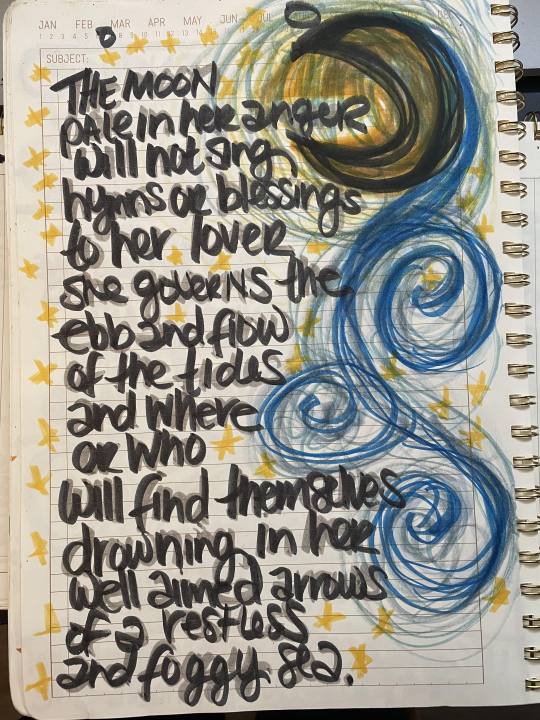 JAN FEB MAR APR MAY JUN JUL
SUBJECT:
THE MOON
pale in her anger
will not sing
hymns or blessings
to her lover
she governs the
ebb and flow
of the tides
and where
or who
will find themselves
drowning in her
well aimed arrows
of a restless
and foggy sea.